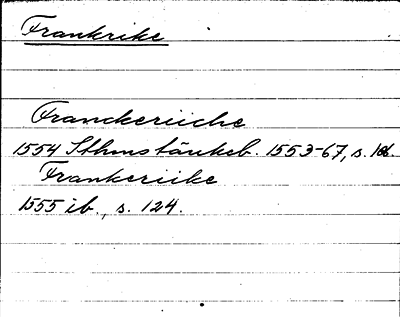 Frankrike
Franckeriiche
1554 Sthms tänkeb. 1553-67, s. 106.
Frankeriike
1555 ib., s. 124.